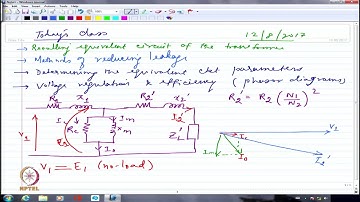 Today's class
12/8/2017
→ Resulting equivalent circuit of the transformer
→ Methods of reducing leakage
→ Determining the equivalent ckt parameters
→ Voltage regulation & efficiency (phasor diagrams)
R₂' = R₂ (N₁/N₂)²
R₂' x₂'
V₁
I₂'
Rc
Xm
Im
I₀
Z_L'
V₁ = E₁ (no-load)
V₂
Ic
Im
I₀
I₂'
NPTEL